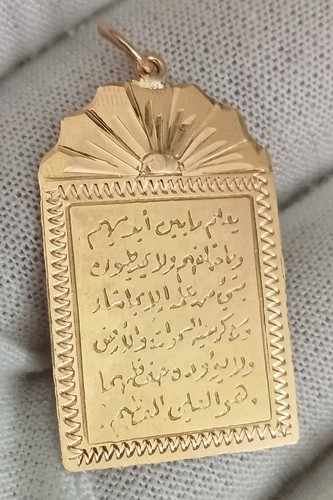 يعلم ما بين أيديهم
وما خلفهم ولا يحيطون
بشئ من علمه الا بما شاء
وسع كرسيه السموات والأرض
ولا يؤوده حفظهما
وهو العلي العظيم